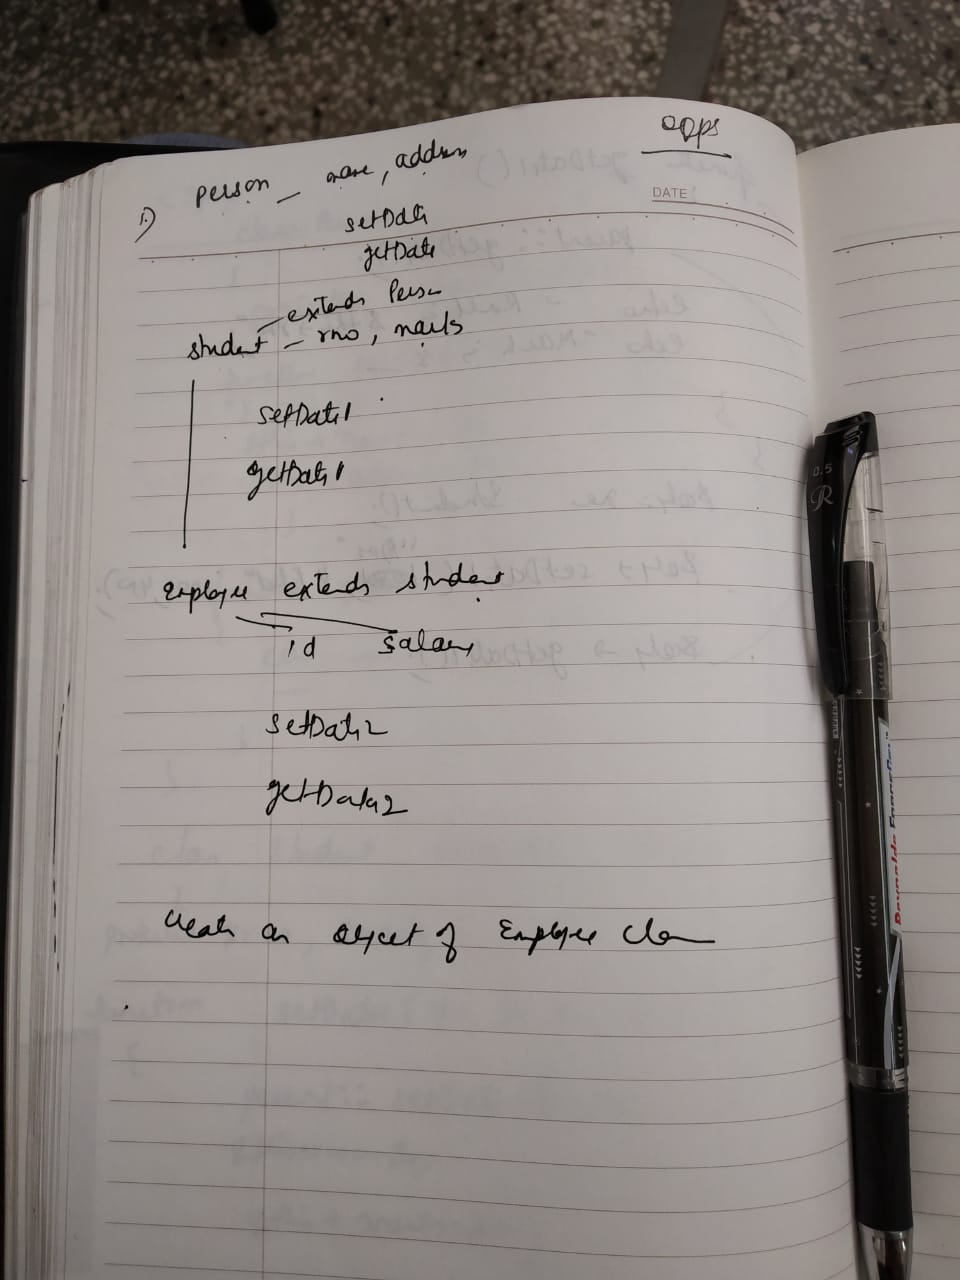 oops
DATE
1) Person - name, address
setData
getData
extends Person
student - rno, marks
setData1
getData1
Employee extends student
id salary
setData2
getData2
Create an object of Employee class
0.5
R